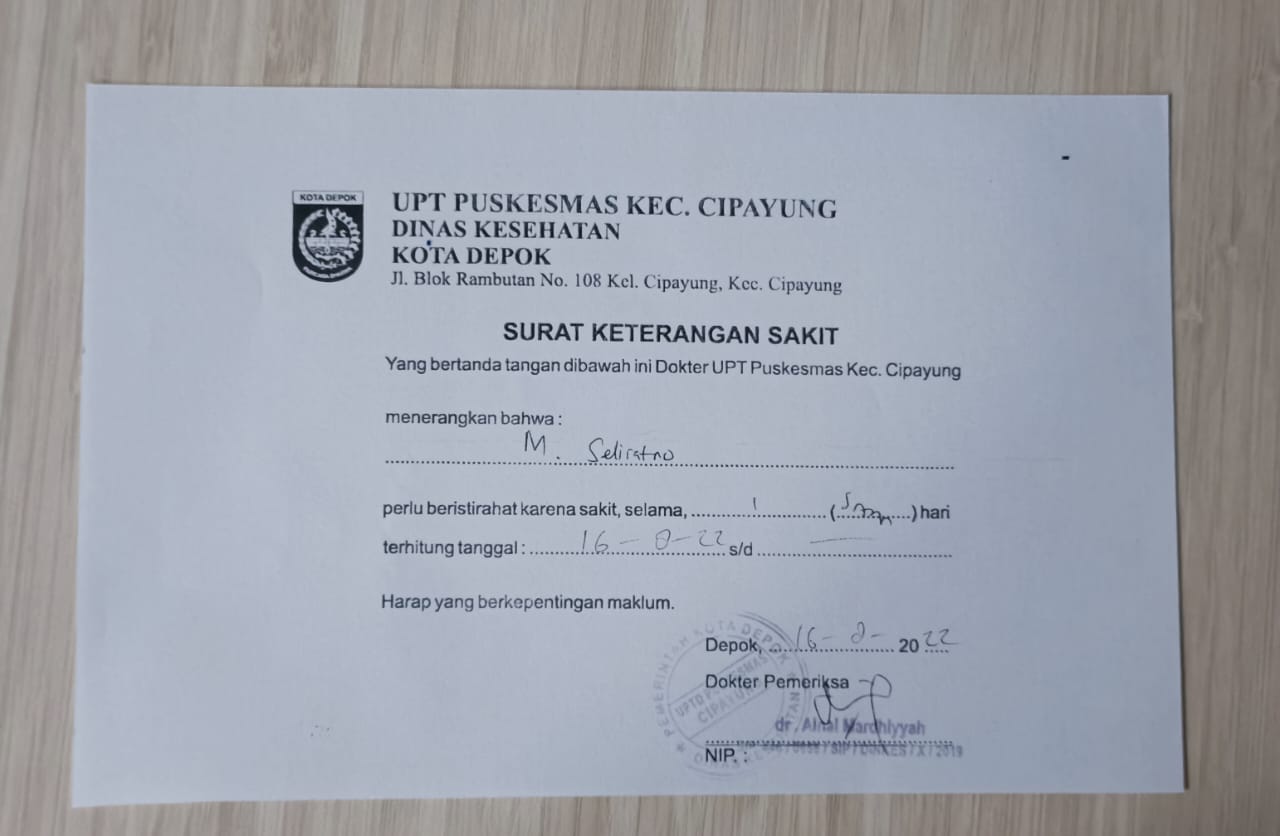 KOTA DEPOK
UPT PUSKESMAS KEC. CIPAYUNG
DINAS KESEHATAN
KOTA DEPOK
Jl. Blok Rambutan No. 108 Kel. Cipayung, Kec. Cipayung
SURAT KETERANGAN SAKIT
Yang bertanda tangan dibawah ini Dokter UPT Puskesmas Kec. Cipayung
menerangkan bahwa :
M.
perlu beristirahat karena sakit, selama, 1 (.........) hari
terhitung tanggal : 16 - 8 - 22 s/d —
Harap yang berkepentingan maklum.
PEMERINTAH KOTA DEPOK
UPTD PUSKESMAS
CIPAYUNG
Depok, 16 - 8 - 2022
Dokter Pemeriksa
dr. Mardhiyyah
NIP. : / SIP / DINKES / X / 2019